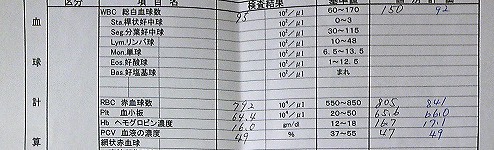 区分 項目名 検査結果 基準値
WBC 総白血球数 95 10²/μl 60~170 150 92
Sta.桿状好中球 10²/μl 0~3
Seg.分葉好中球 10²/μl 30~115
Lym.リンパ球 10²/μl 10~48
Mon.単球 10²/μl 6.5~13.5
Eos.好酸球 10²/μl 1~12.5
Bas.好塩基球 10²/μl まれ
RBC 赤血球数 792 10⁴/μl 550~850 805 841
Plt 血小板 64.4 10⁴/μl 20~50 65.6 66.0
Hb ヘモグロビン濃度 16.0 gm/d 12~18 16.7 17.1
PCV 血液の濃度 49 % 37~55 47 49
網状赤血球
血
球
計
算